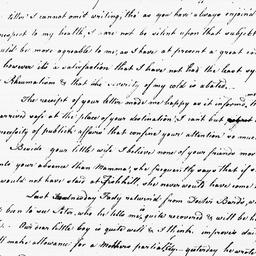 letter I cannot omit writing, tho' as you have always enjoind
respect to my health, I are not be silent upon that subject
ould be more agreable to me, as I have at present a great co
however its a satisfaction that I have not had the least sy
Rheumatism & that the severity of my cold is abated.
The receipt of your letter made me happy as it informd, t
arrived safe at the place of your destination. I cant but
necessity of publick affairs that confind your attention so muc
Beside your little wife I believe none of your friends mo
your absence than Mamma; she frequently says that if
would not have staid at Fishkill, she never would have come
Last Wednesday Pady returned from Doctor Bards, w
been to see Peter, who he tells me, is quite recovered & will be h
Our dear little boy is quite well & I think improves dai
ll make allowance for a Mothers partiality — yesterday he wrote